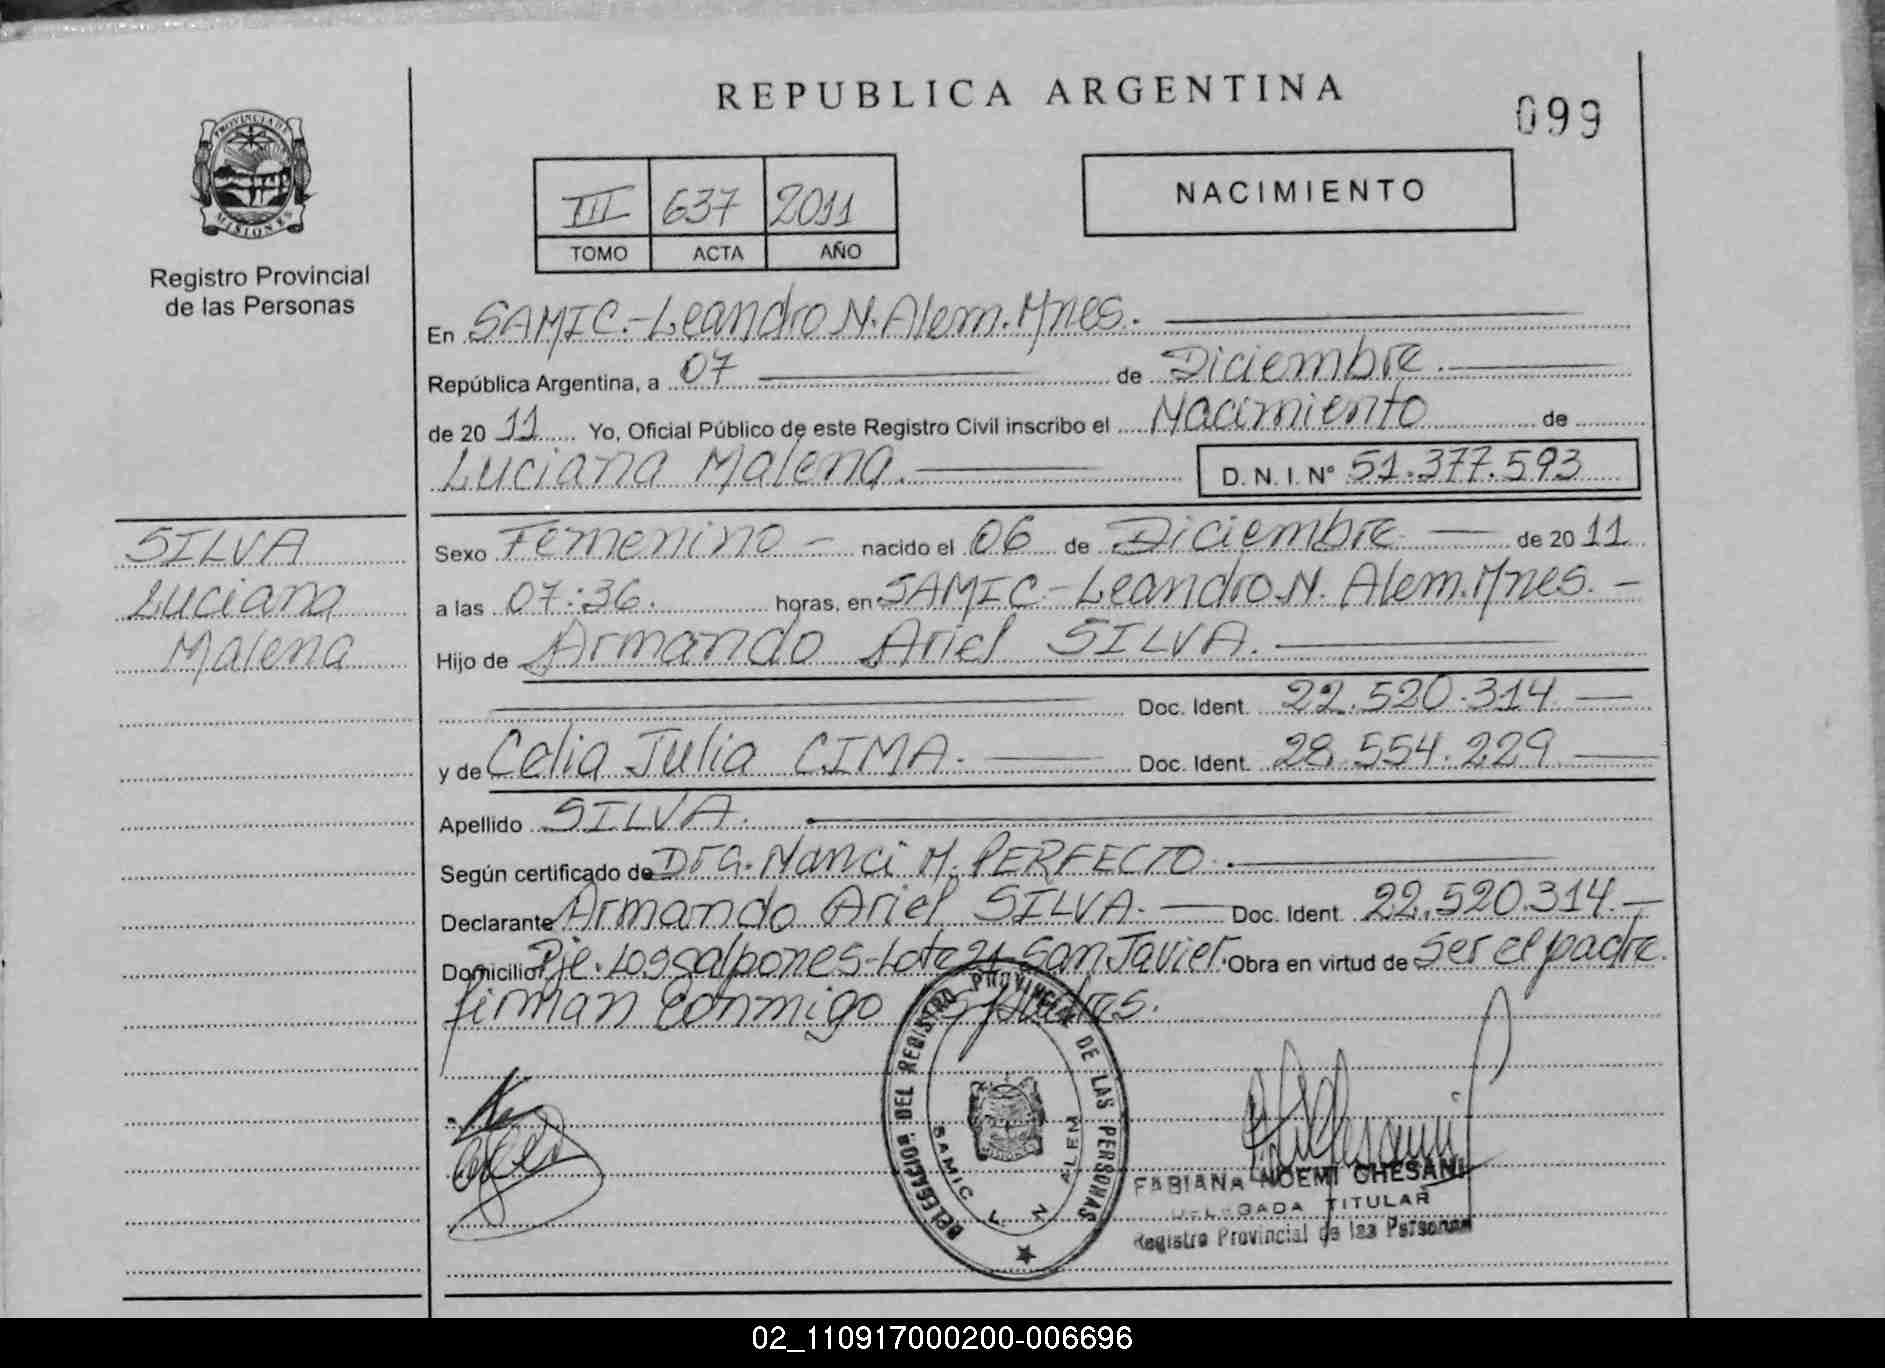 REPUBLICA ARGENTINA
099
PROVINCIA DE
MISIONES
Registro Provincial
de las Personas
III 637 2011
TOMO ACTA AÑO
NACIMIENTO
En SAMIC.-Leandro N. Alem. Mnes.
República Argentina, a 07 de Diciembre.
de 20 11 Yo, Oficial Público de este Registro Civil inscribo el Nacimiento de
Luciana Malena. D. N. I. N° 51.377.593
SILVA
Luciana
Malena
Sexo Femenino - nacido el 06 de Diciembre de 20 11
a las 07:36. horas, en SAMIC-Leandro N. Alem. Mnes. -
Hijo de Armando Ariel SILVA.
Doc. Ident. 22.520.314
y de Celia Julia CIMA. Doc. Ident. 28.554.229
Apellido SILVA.
Según certificado de Dra. Nanci M. PERFECTO.
Declarante Armando Ariel SILVA. Doc. Ident. 22.520.314.
Domicilio Pje. Los galpones-Lote 21 San Javier. Obra en virtud de Ser el padre.
firman conmigo Padres.
DELEGACION DEL REGISTRO PROVINCIAL DE LAS PERSONAS
SAMIC L. N. ALEM
FABIANA NOEMI GHESANI
DELEGADA TITULAR
Registro Provincial de las Personas
02_110917000200-006696